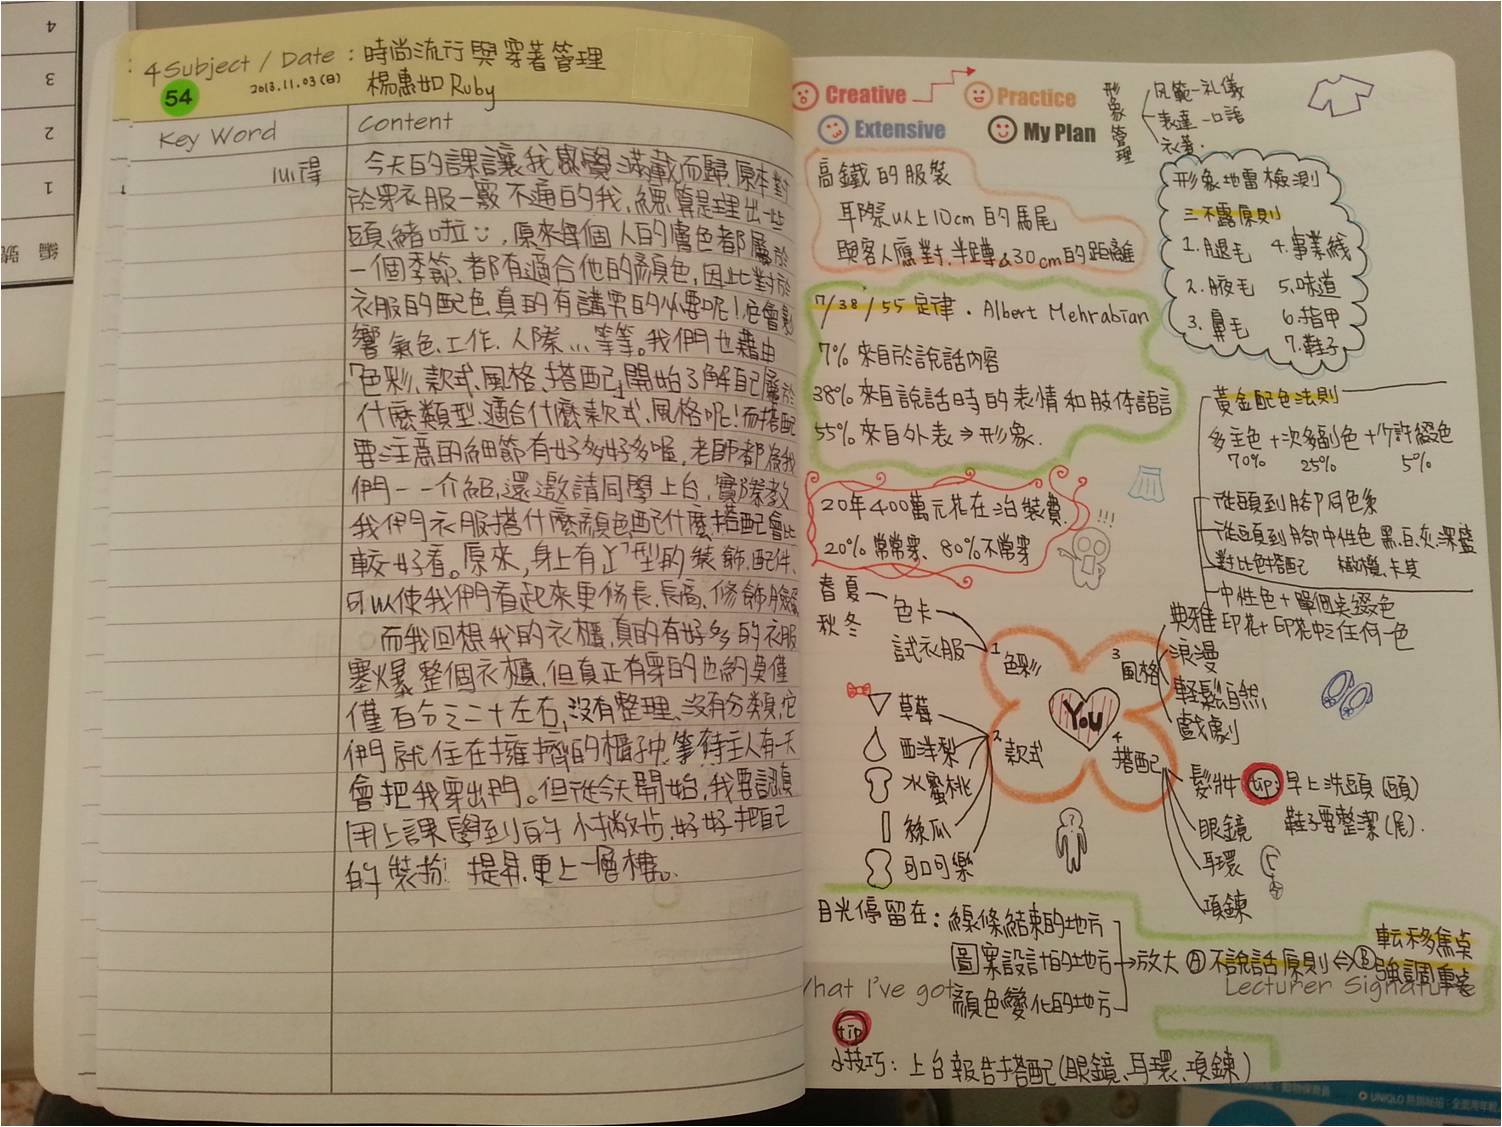 4
3
2
1
編號
4 Subject / Date : 時尚流行與穿著管理
54
2013.11.03(日) 楊惠如 Ruby
Key Word
Content
心得
今天的課讓我感覺滿載而歸,原本對
於穿衣服一竅不通的我,總算是理出一些
頭緒啦,原來每個人的膚色都屬於
一個季節,都有適合他的顏色,因此對於
衣服的配色真的有講究的必要呢!它會影
響氣色、工作、人際...等等。我們也藉由
「色彩、款式、風格、搭配」開始了解自己屬於
什麼類型、適合什麼款式、風格呢!而搭配
要注意的細節有好多好多喔,老師都為我
們一一介紹,還邀請同學上台,實際教
我們衣服搭什麼顏色配什麼搭配會比
較好看。原來,身上有 型的裝飾、配件、
可以使我們看起來更修長、長高、修飾臉
而我回想我的衣櫃,真的有好多的衣服
塞爆整個衣櫃,但真正有穿的也約莫僅
僅百分之二十左右,沒有整理、沒有分類,它
們就住在擁擠的櫃子中,等待主人有一天
會把我穿出門。但從今天開始,我要認真
用上課學到的小撇步,好好把自己
的裝扮提昇,更上一層樓。
Creative
Practice
Extensive
My Plan
形象管理
風範-礼儀
表達-口語
衣著.
高鐵的服裝
耳際以上10cm的馬尾
與客人應對,半蹲&30cm的距離
形象地雷檢測
三不露原則
1.腿毛 4.事業線
2.腋毛 5.味道
3.鼻毛 6.指甲
7.鞋子
7/38/55 定律. Albert Mehrabian
7% 來自於說話內容
38% 來自說話時的表情和肢体語言
55% 來自外表⇒形象.
20年400萬元花在治裝費.
20% 常常穿、80%不常穿
!!!
黃金配色法則
多主色+次多副色+少許綴色
70% 25% 5%
從頭到腳同色系
從頭到腳中性色 黑、白、灰、深藍
對比色搭配 橄欖、卡其
中性色+單個点綴色
印花+印花中之任何一色
春夏
秋冬
色卡
試衣服
1 色彩
2 款式
3 風格
4 搭配
You
典雅
浪漫
輕鬆自然
戲劇
草莓
西洋梨
水蜜桃
絲瓜
可口可樂
髮妝
眼鏡
耳環
項鍊
tip: 早上洗頭(頭)
鞋子要整潔(尾).
?
目光停留在: 線條結束的地方
圖案設計的地方
顏色變化的地方
→放大 Ⓐ不說話原則⇔Ⓑ轉移焦点
強調重点
What I've got
Lecturer Signature
tip
小技巧: 上台報告搭配(眼鏡、耳環、項鍊)
UNIQLO